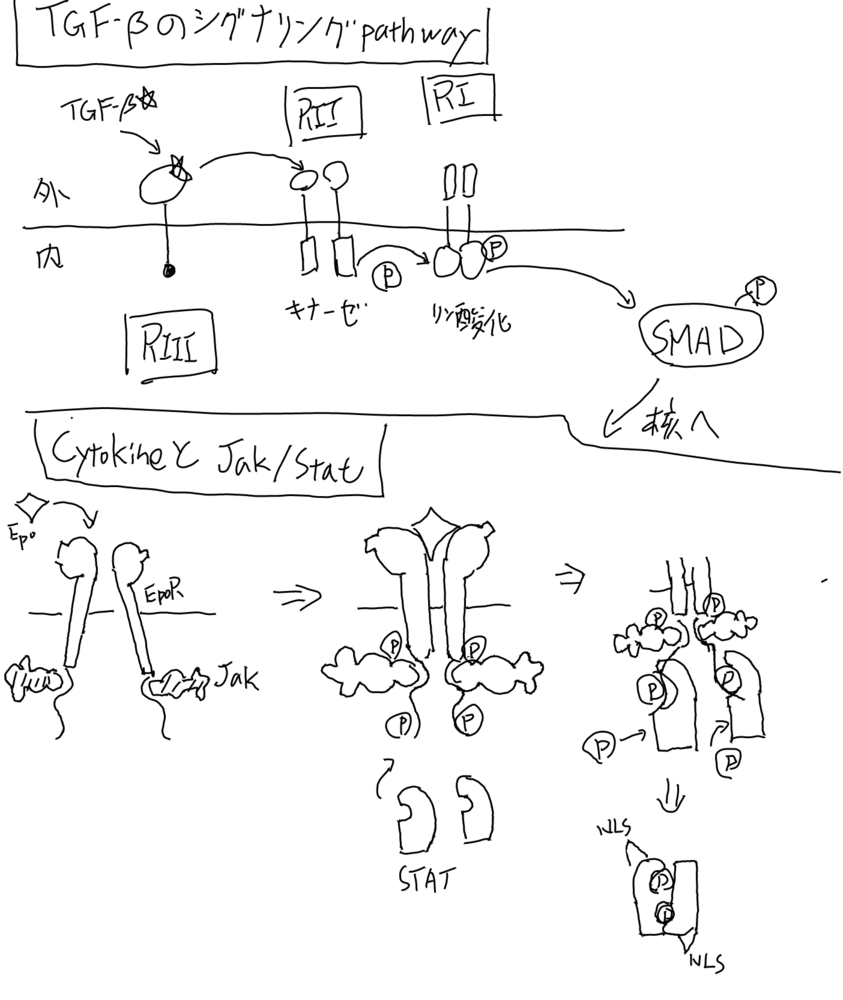 TGF-βのシグナリングpathway
TGF-β☆
RII
RI
外
内
P
P
P
キナーゼ
リン酸化
SMAD
RIII
核へ
Cytokineと Jak/Stat
Epo
EpoR
Jak
P
P
P
P
STAT
P
P
P
P
P
P
NLS
P
P
NLS